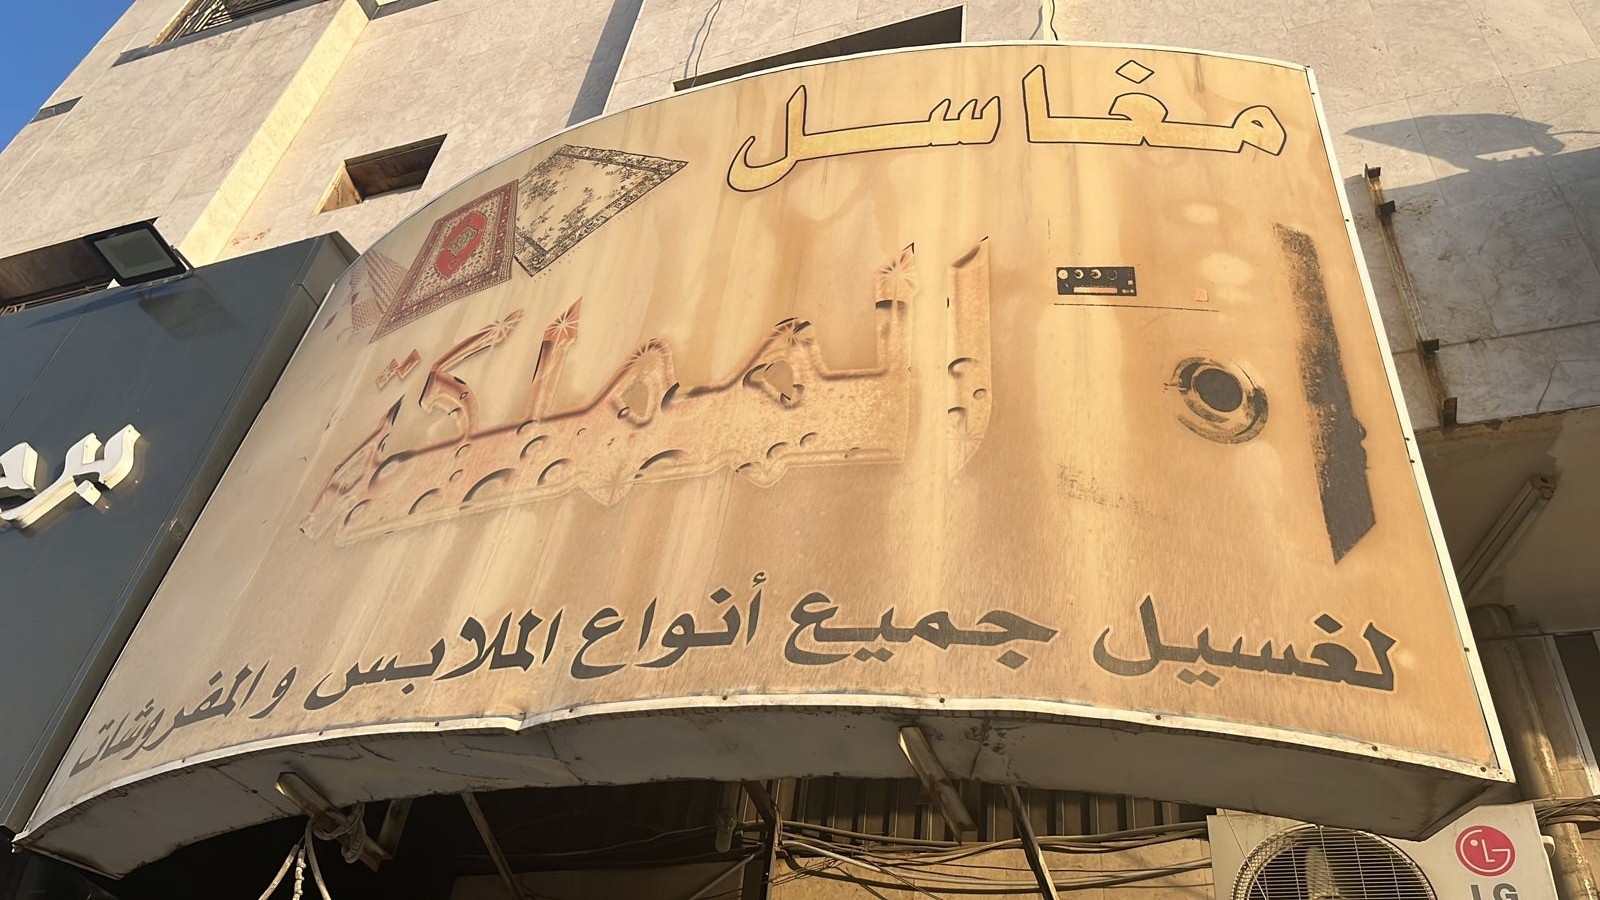 مغاسل
المملكة
لغسيل جميع أنواع الملابس والمفروشات
LG